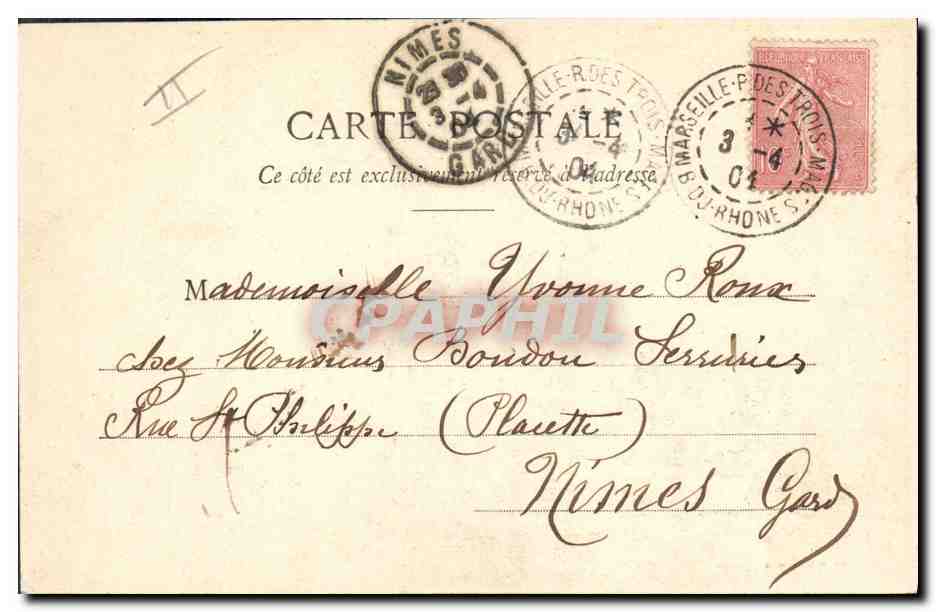 II
NIMES
3 -4
04
GARD
MARSEILLE-R.DES TROIS MAGES
3 -4
04
B.DU-RHONE
MARSEILLE-R.DES TROIS-MAGES
1 *
3 -4
04
B.DU-RHONE
CARTE POSTALE
Ce côté est exclusivement réservé à l'adresse
Mademoiselle Yvonne Roux
CPAPHIL
chez Monsieur Boudou Serrurier
Rue St Philippe (Placette)
Nîmes Gard